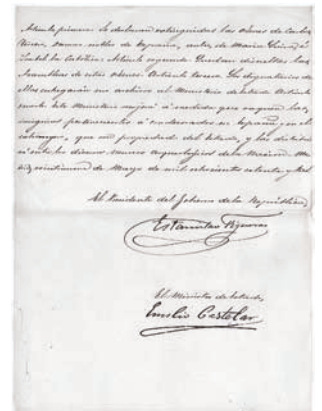 Artículo primero. Se declaran extinguidas las órdenes de Carlos
Tercero, damas nobles de España, de María Luisa é
Isabel la Católica. Artículo segundo. Quedan disueltas las
Asambleas de estas órdenes. Artículo tercero. Los
entregarán sus archivos al Ministerio de Estado. Artículo
cuarto. Este Ministerio
insignias á condecorados en España y en el
Extranjero, que son propiedad del Estado, y las
Museo Arqueológico de la Nación. Ma-
de Marzo de mil ochocientos setenta y tres.
El Presidente del Gobierno de la República,
Estanislao Figueras
El Ministro de Estado,
Emilio Castelar